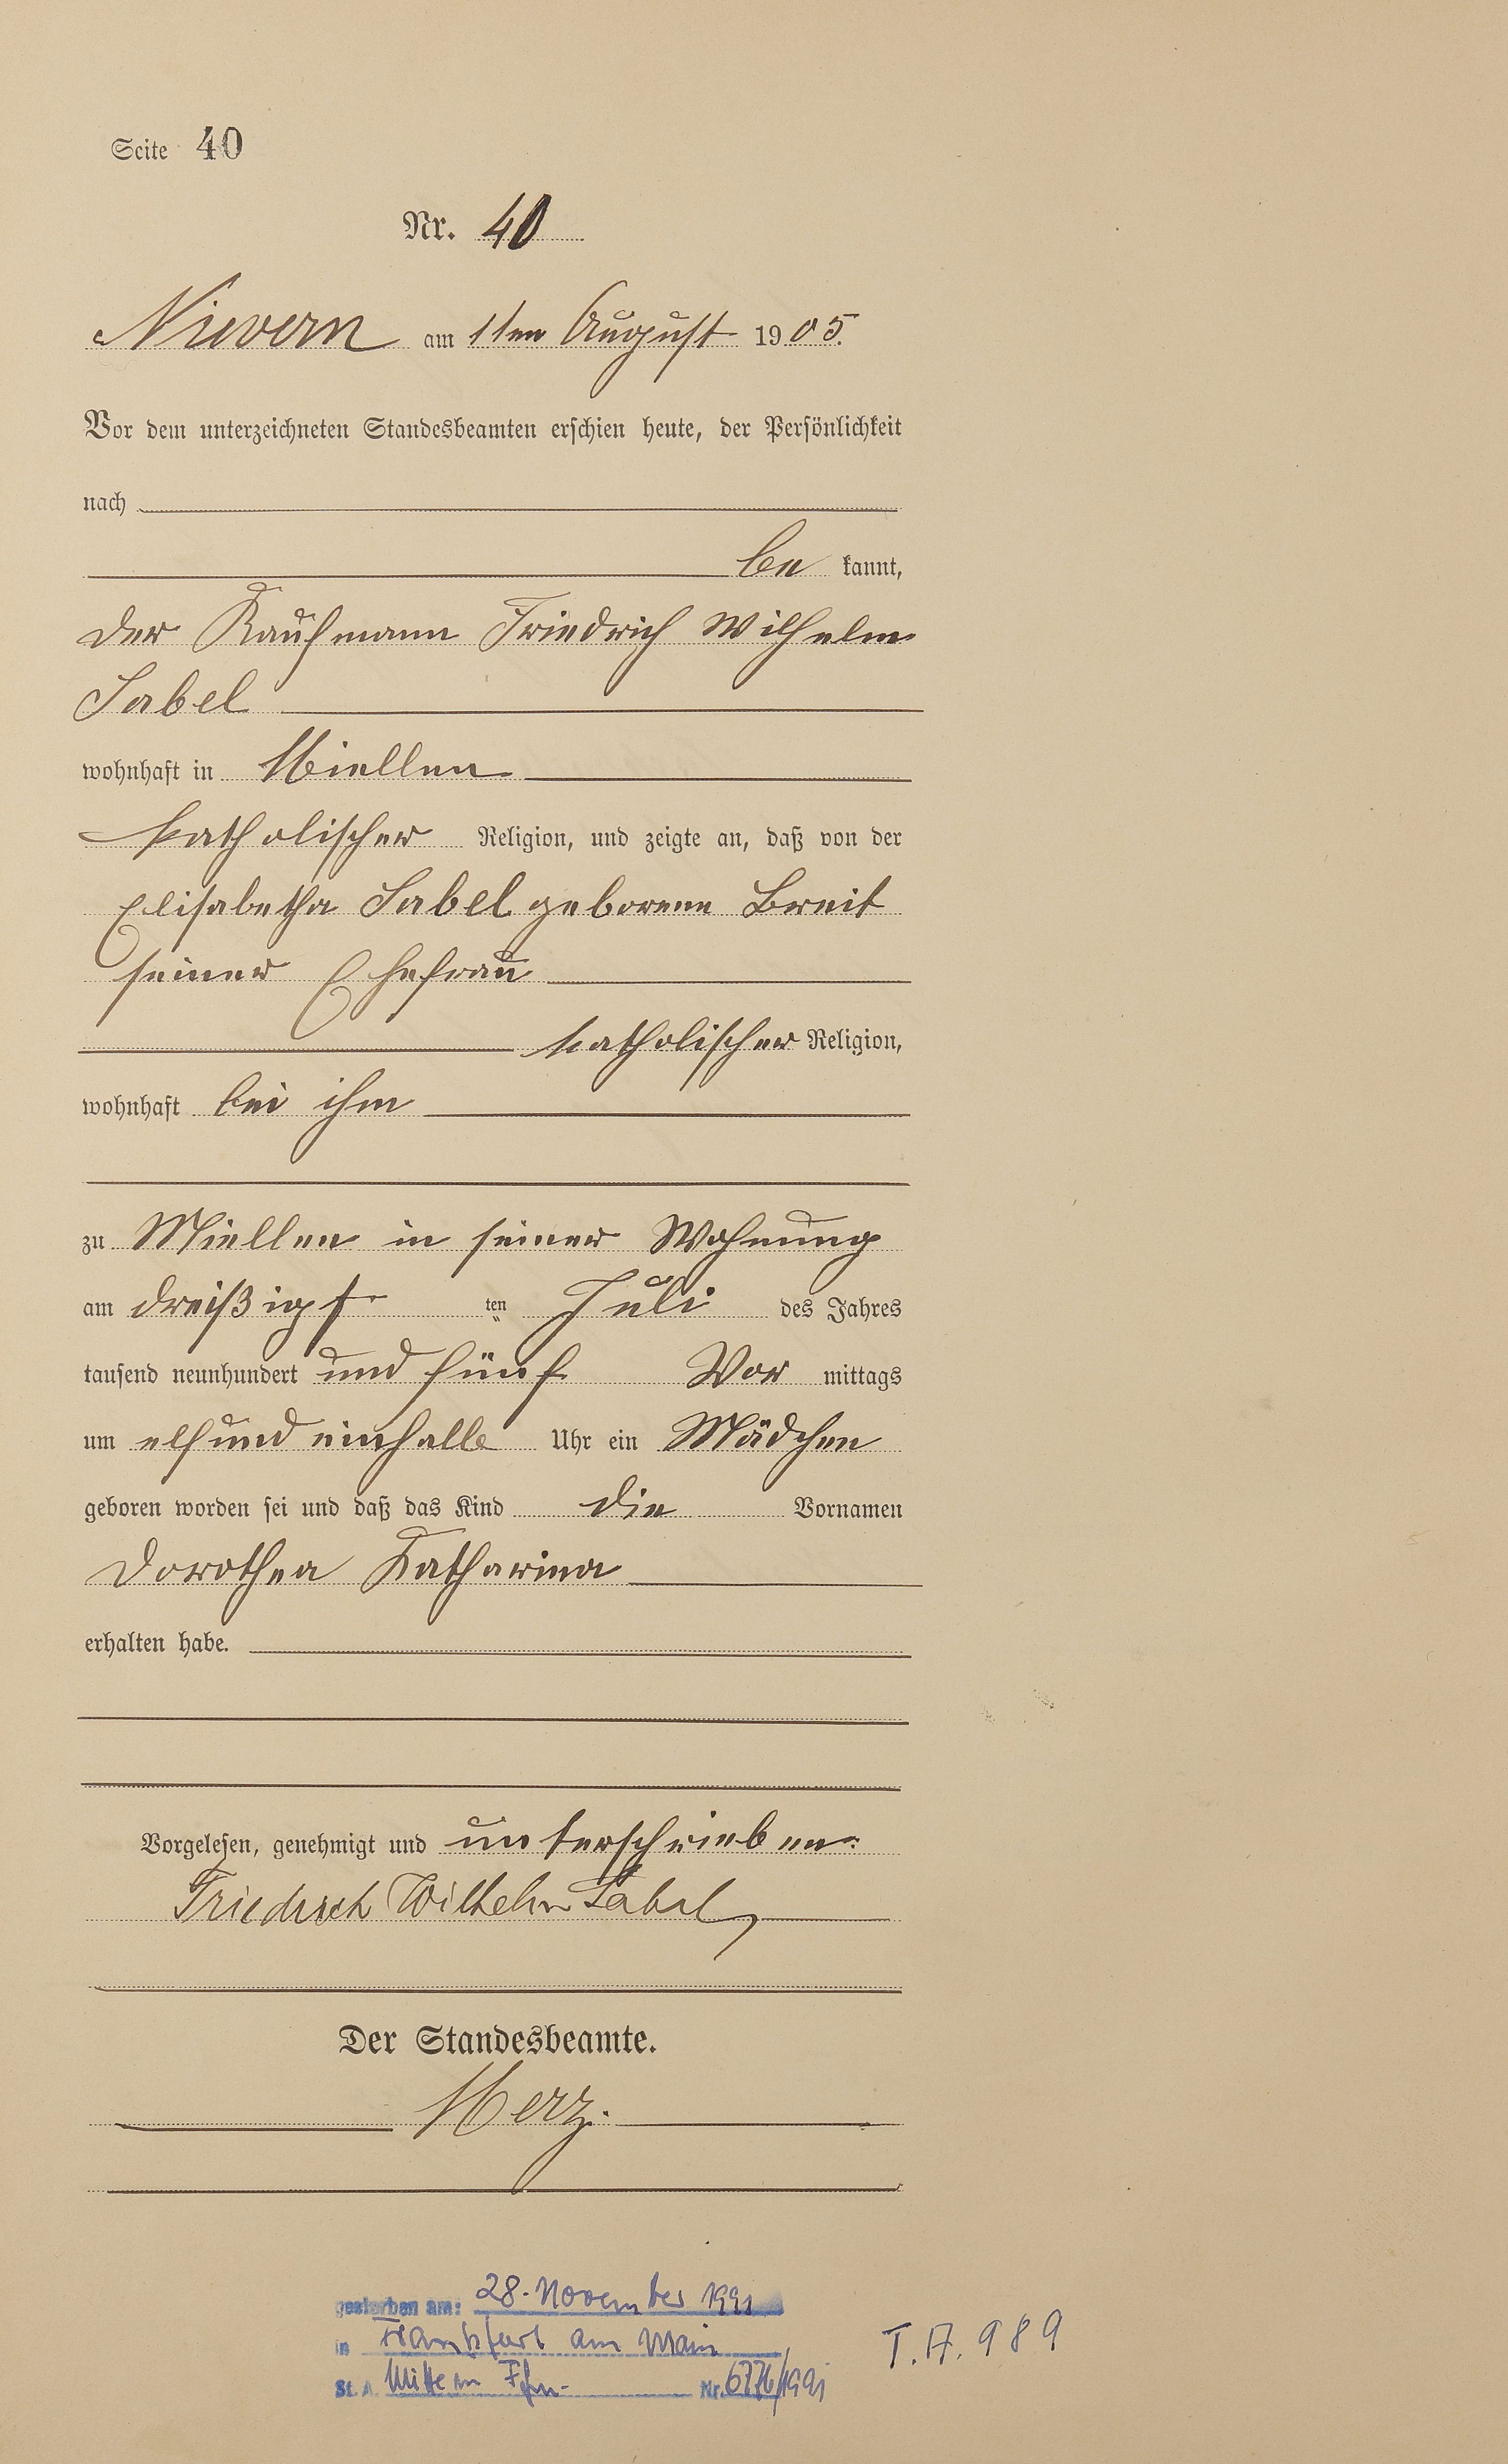 Seite 40
Nr. 40
Nievern am 1ten August 1905.
Vor dem unterzeichneten Standesbeamten erschien heute, der Persönlichkeit
nach
be kannt,
der Kaufmann Friedrich Wilhelm
Sabel
wohnhaft in Miellen
katholischer Religion, und zeigte an, daß von der
Elisabetha Sabel geborene Breit
seiner Ehefrau
katholischer Religion,
wohnhaft bei ihm
zu Miellen in seiner Wohnung
am dreißigst ten Juli des Jahres
tausend neunhundert und fünf Vor mittags
um elf und einhalb Uhr ein Mädchen
geboren worden sei und daß das Kind die Vornamen
Dorothea Katharina
erhalten habe.
Vorgelesen, genehmigt und unterschrieben:
Friedrich Wilhelm Sabel
Der Standesbeamte.
Merz.
gestorben am: 28. November 1991
in Frankfurt am Main
St. A. Mitte in Ffm. Nr. 6776/1991
T.A. 989